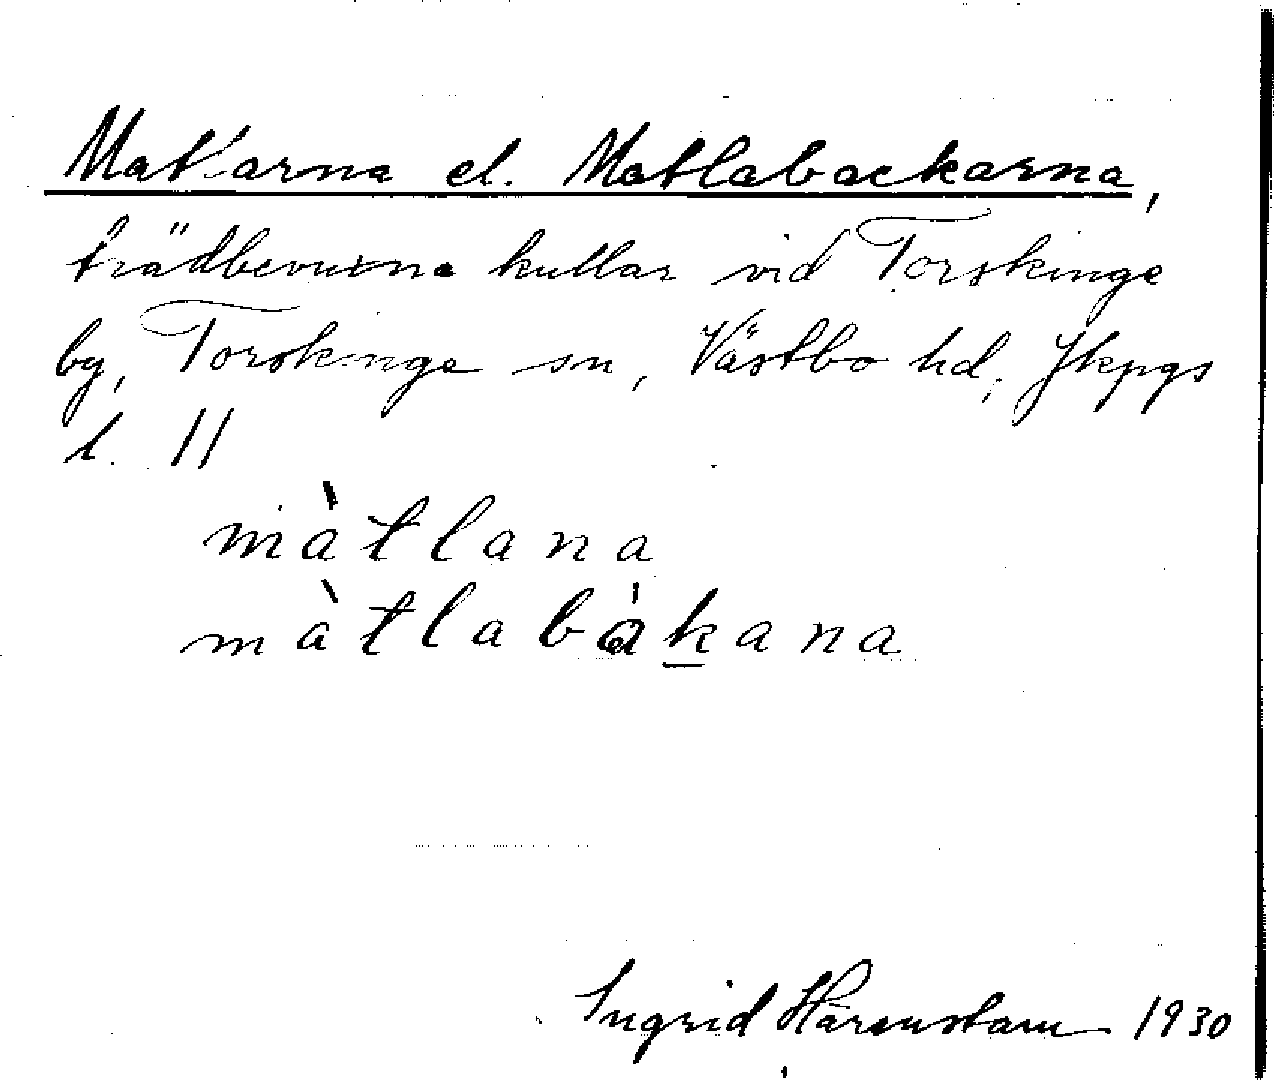 Matlarna el. Matlabackarna,
trädbevuxna kullar vid Torskinge
by, Torskinge sn, Västbo hd, Jkpgs
l. //
màtlana
màtlabàkana
Ingrid Härenstam 1930